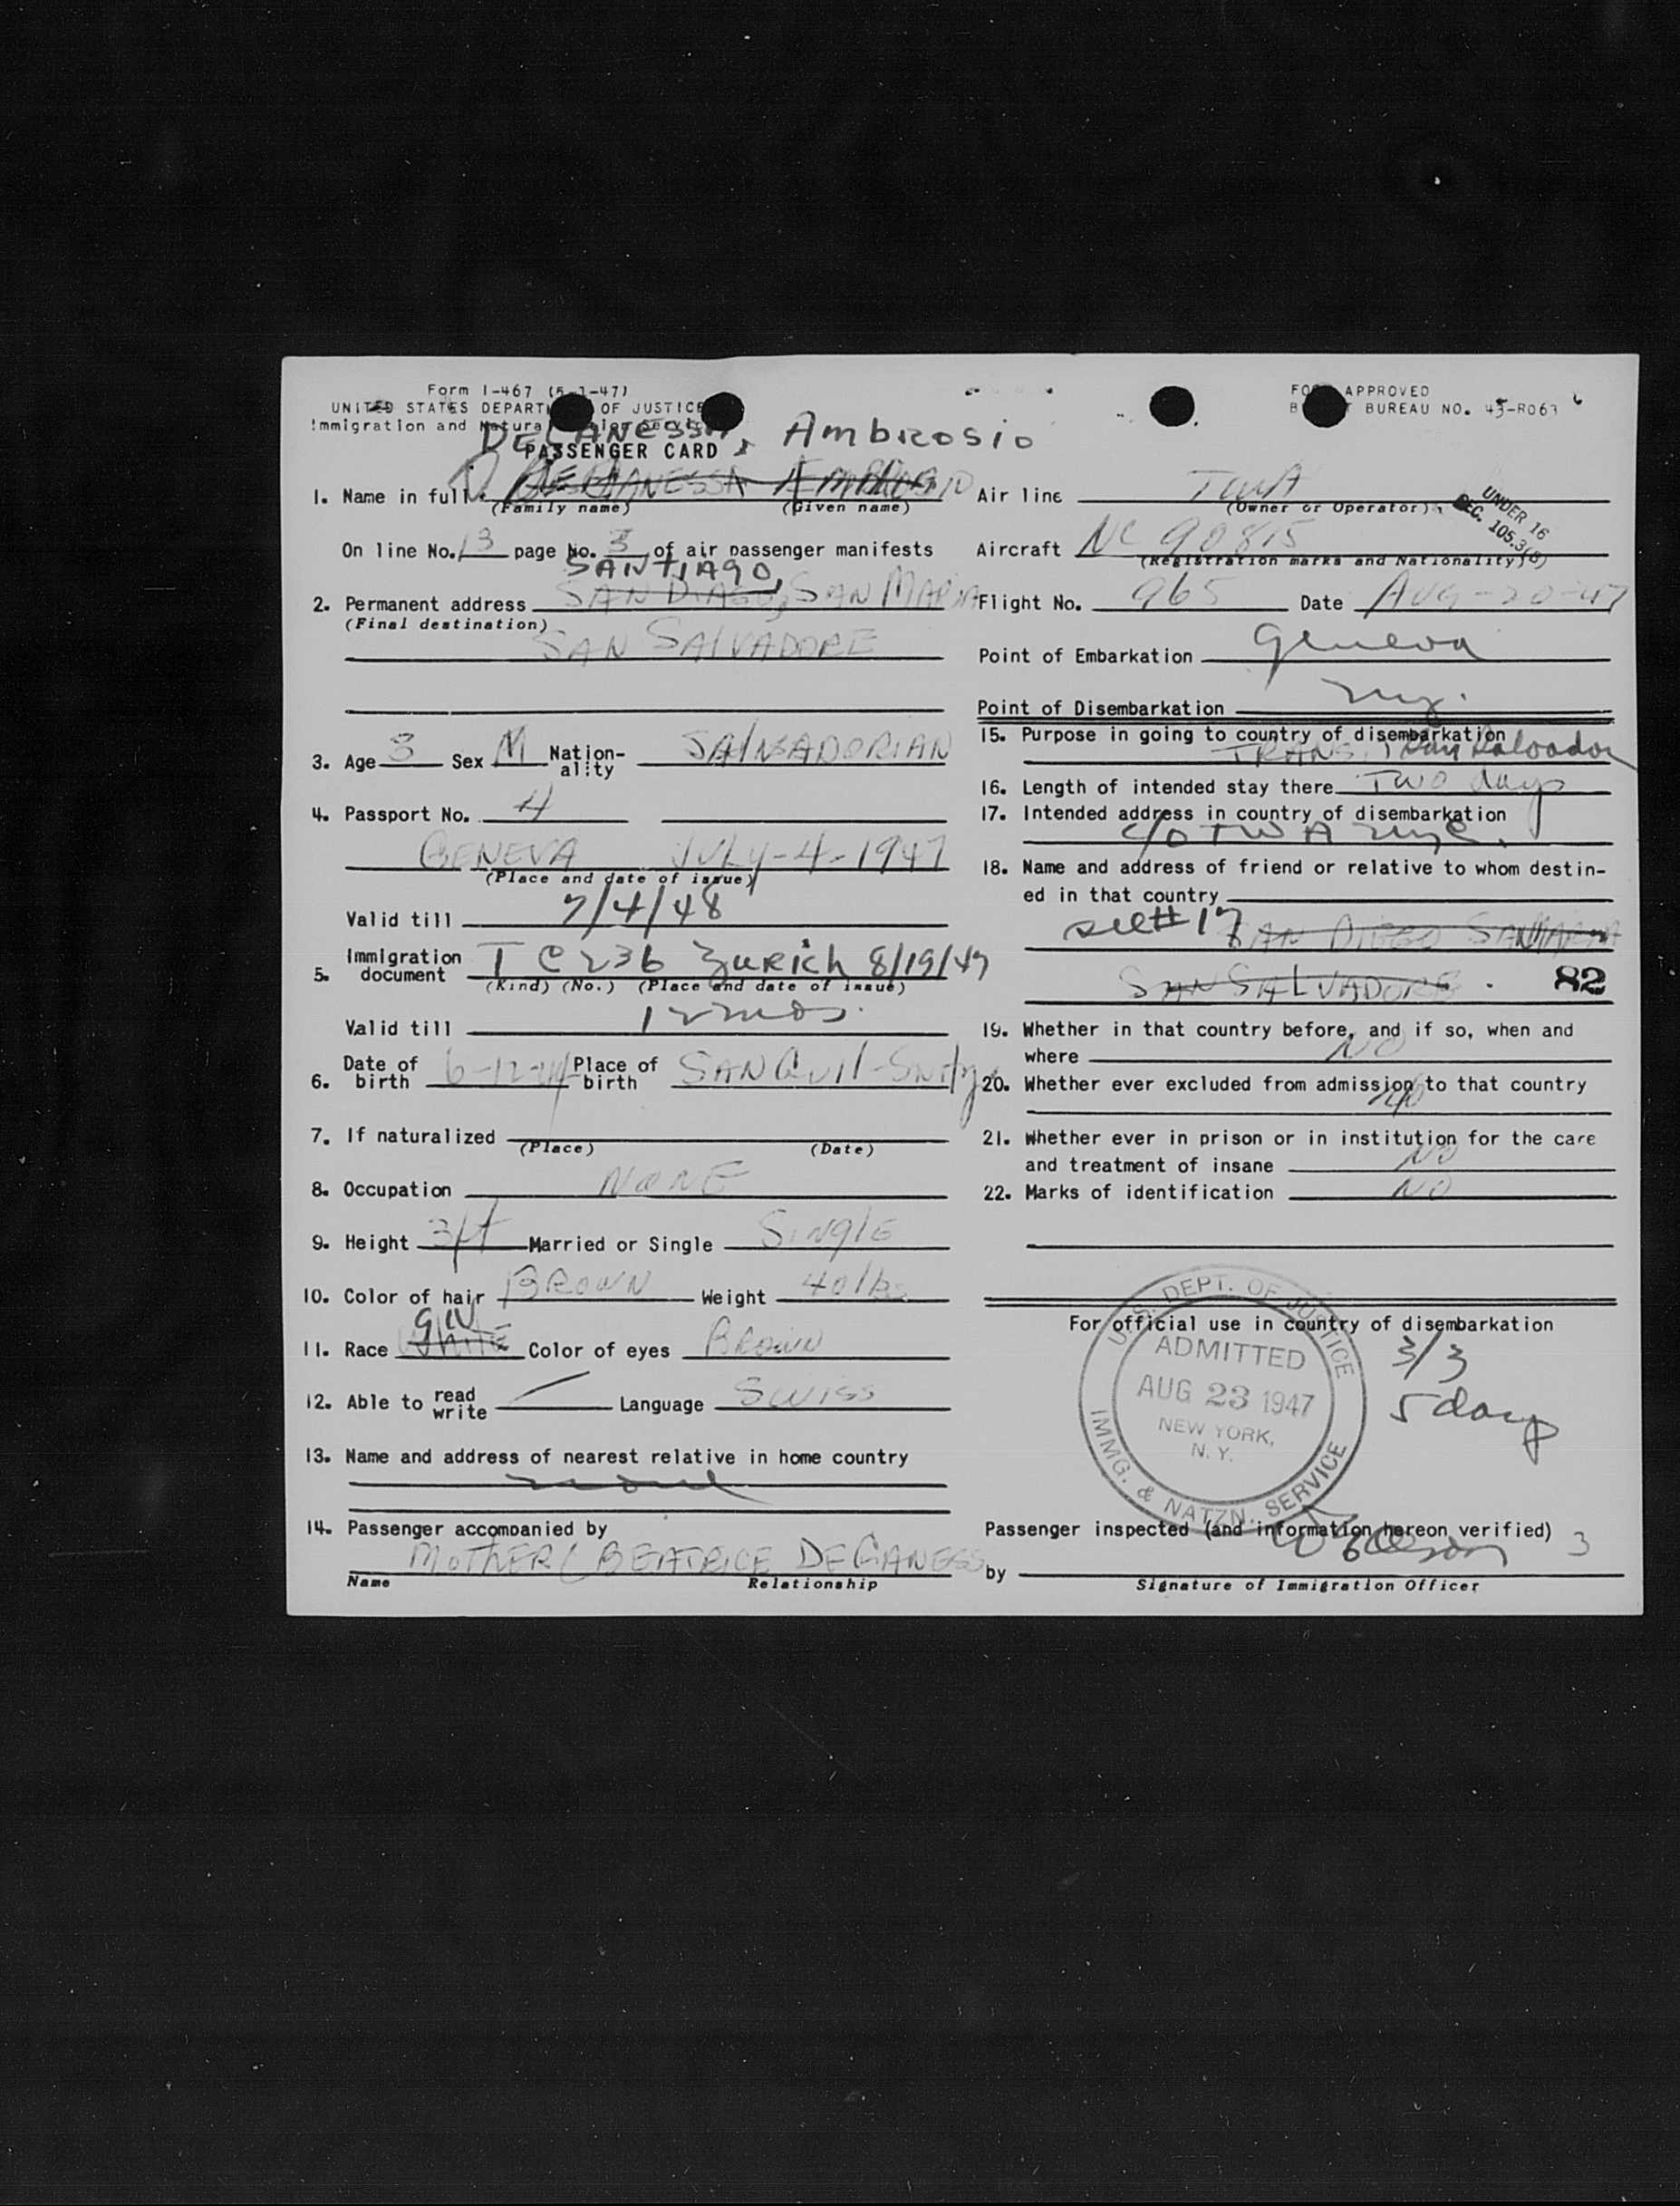 Form I-467 (5-1-47)
UNITED STATES DEPARTMENT OF JUSTICE
Immigration and Natural Service
DEGANESSA, Ambrosio
PASSENGER CARD
1. Name in full DEGANESSA AMBROSIO
(Family name) (Given name)
On line No. 13 page No. 3 of air passenger manifests
SANTIAGO,
2. Permanent address SAN DIAGO, SAN MARIA
(Final destination)
SAN SALVADORE
3. Age 3 Sex M Nationality SALVSADORIAN
4. Passport No. 4
GENEVA JULY-4-1947
(Place and date of issue)
Valid till 7/4/48
5. Immigration document T C 236 Zurich 8/19/47
(Kind) (No.) (Place and date of issue)
Valid till 12 mos.
6. Date of birth 6-12-44 Place of birth SAN
7. If naturalized
(Place) (Date)
8. Occupation NONE
9. Height 3ft Married or Single SINGLE
10. Color of hair BROWN Weight 40 lbs
11. Race WHITE Color of eyes BROWN
12. Able to read write Language SWISS
13. Name and address of nearest relative in home country
none
14. Passenger accompanied by
MOTHER (BEATRICE DEGANESS
Name Relationship
FORM APPROVED
BUREAU NO. 43-R063
Air line TWA
(Owner or Operator)
UNDER 16
SEC. 105.3(B)
Aircraft NC 90815
(Registration marks and Nationality)
Flight No. 965 Date AUG-20-47
Point of Embarkation Geneva
Point of Disembarkation NY.
15. Purpose in going to country of disembarkation
TRANSIT San Salvador
16. Length of intended stay there Two days
17. Intended address in country of disembarkation
c/o TWA NYC.
18. Name and address of friend or relative to whom destin-
ed in that country
see #17 SAN DIEGO SANMARIA
SAN SALVADORE . 82
19. Whether in that country before, and if so, when and
where NO
20. Whether ever excluded from admission to that country
NO
21. Whether ever in prison or in institution for the care
and treatment of insane NO
22. Marks of identification NO
For official use in country of disembarkation
U.S. DEPT. OF JUSTICE
ADMITTED
AUG 23 1947
NEW YORK,
N. Y.
IMMG. & NATZN. SERVICE
3/3
5 days
Passenger inspected (and information hereon verified) 3
by
Signature of Immigration Officer